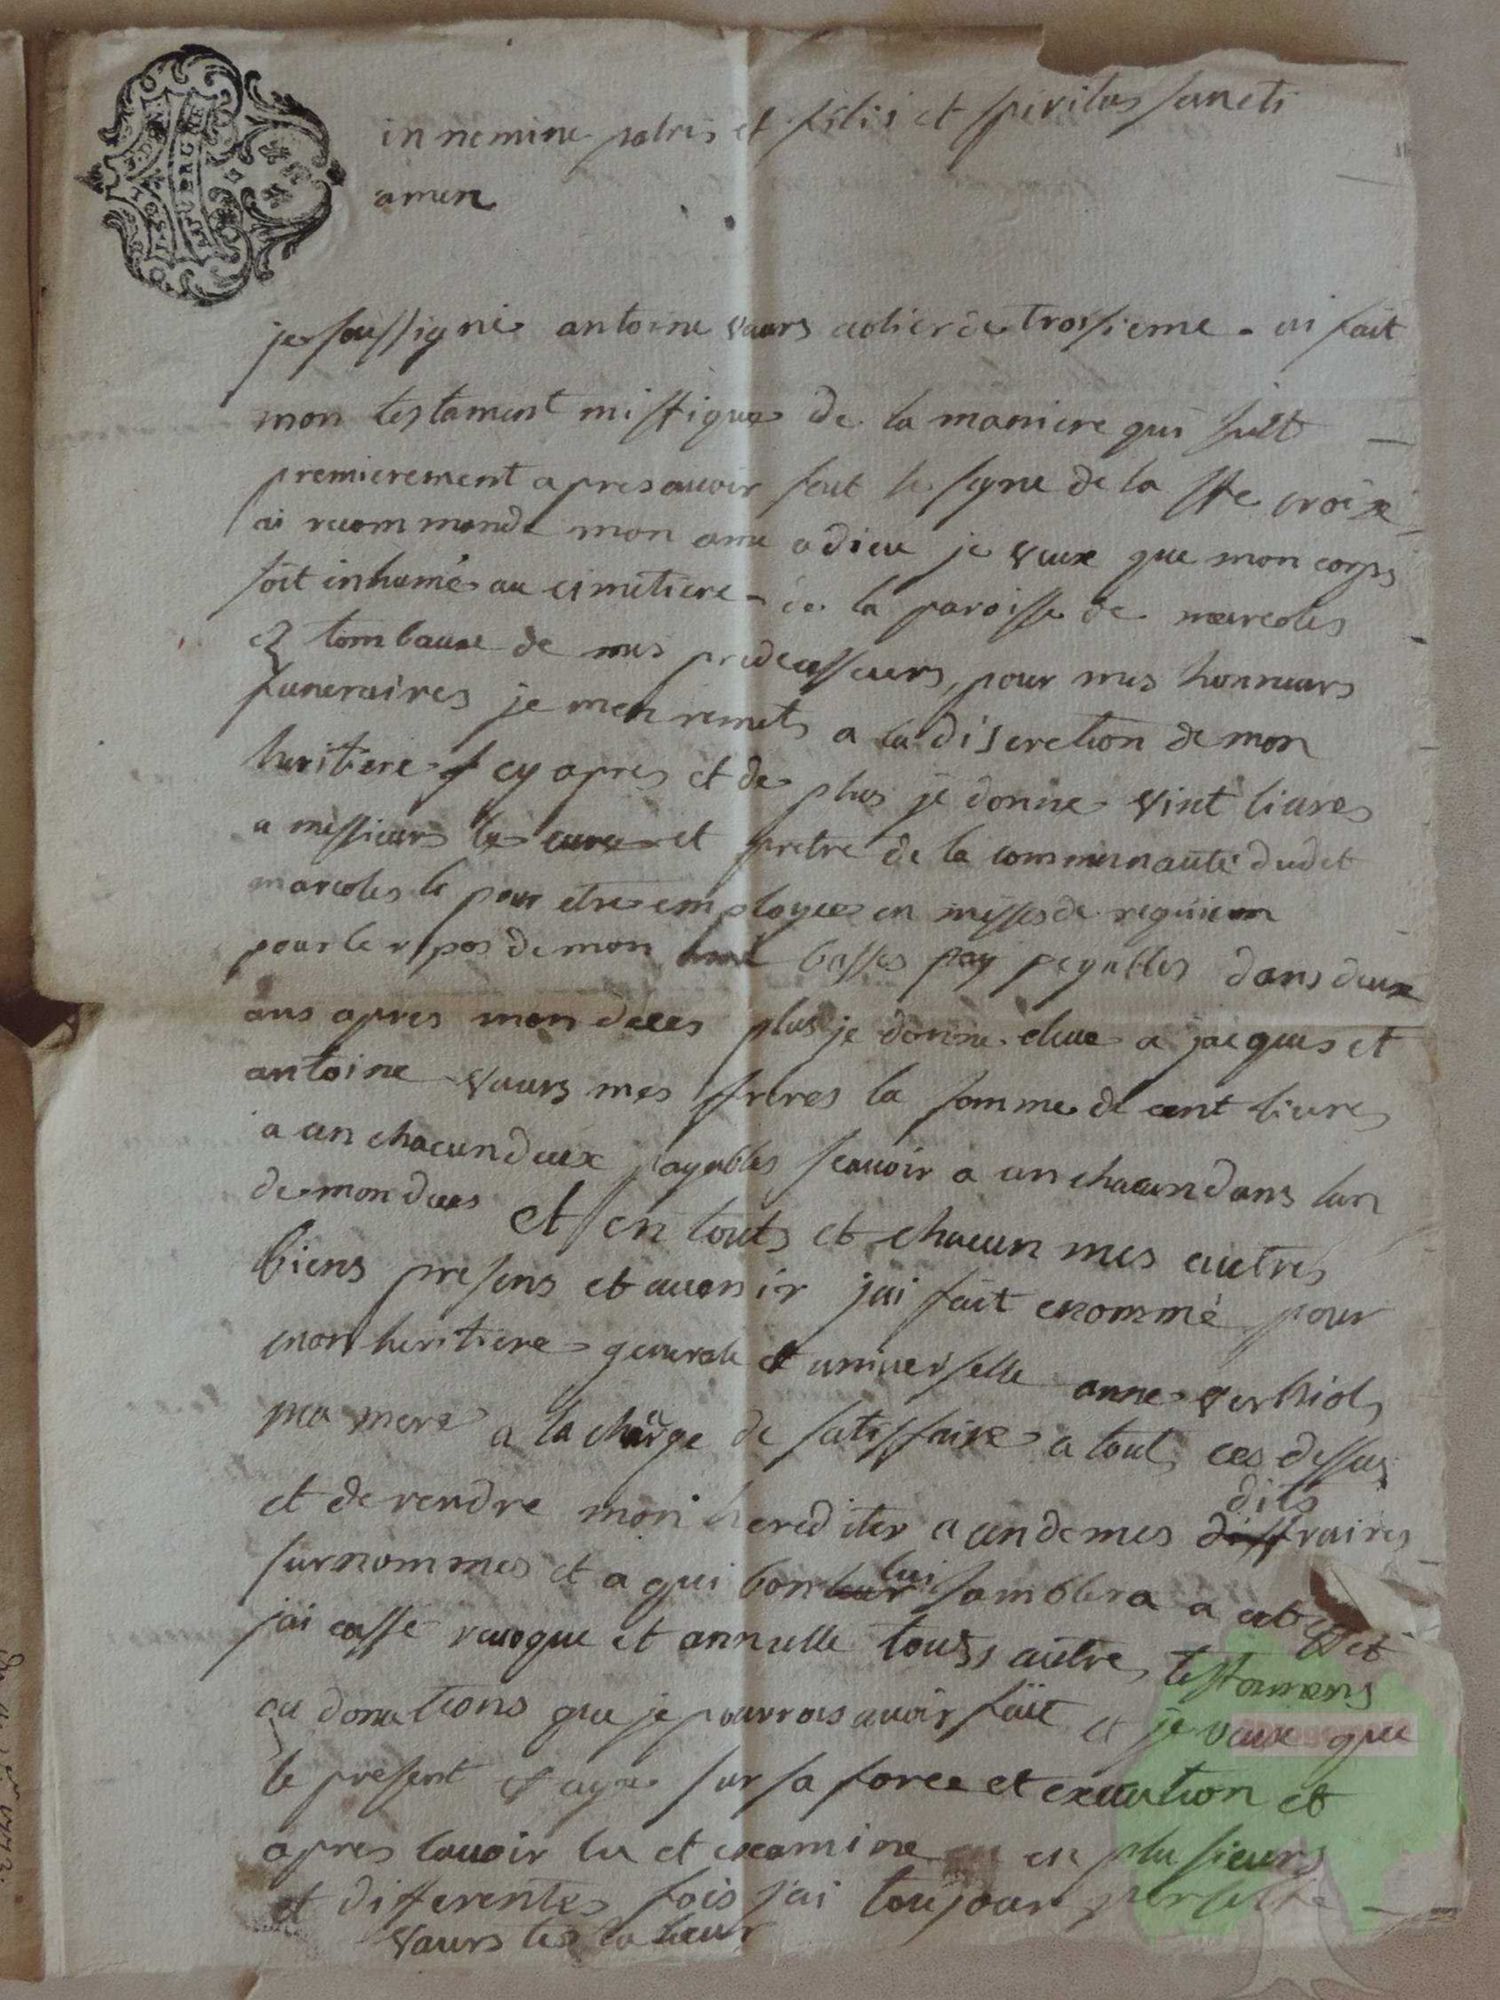 in nomine patris et filii et spiritus sancti
amen
je soussigné antoine vaurs ecolier de troisieme ai fait
mon testament mistique de la maniere qui suit
premierement apres avoir fait le signe de la ste croix
ai recommande mon ame a dieu je veux que mon corps
soit inhumé au cimetiere de la paroisse de marcoles
et tombaux de mes predecesseurs, pour mes honneurs
funeraires je men remets a la discretion de mon
heritiere cy apres et de plus je donne vint livres
a messieurs le curé et pretre de la communauté dudit
marcoles le pour etre employee en messes de requiem
pour le repos de mon ame basses pay payables dans deux
ans apres mon deces plus je donne a jacques et
antoine vaurs mes freres la somme de cent livres
a un chacun deux payables scavoir a un chacun dans lan
de mon deces et en touts et chacun mes autres
biens presens et avenir jai fait et nommé pour
mon heritiere generale et universelle anne verhiol
ma mere a la charge de satisfaire a tout ces dessus
et de rendre mon herediter a un de mes dits freres
surnommes et a qui bon lui samblera a cet effet
jai casse revoque et annulle touts autres testamens
ou donations que je pourrois avoir fait et je veux que
le present aye sur sa force et execution et
apres lavoir lu et examine en plusieurs
et differentes fois jai toujour persisté
vaurs testateur